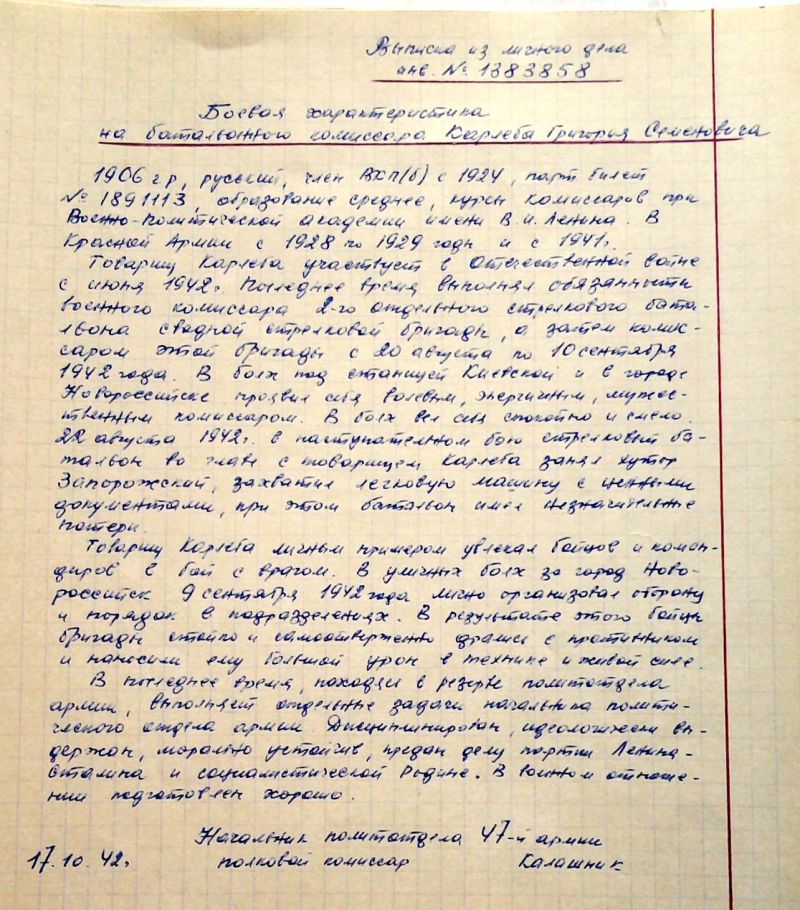 Выписка из личного дела
инв. № 1383858
Боевая характеристика
на батальонного комиссара Карлеба Григория Семеновича
1906 г.р., русский, член ВКП(б) с 1924, парт билет
№ 1891113, образование среднее, курсы комиссаров при
Военно-политической академии имени В.И. Ленина. В
Красной Армии с 1928 по 1929 годы и с 1941 г.
Товарищ Карлеба участвует в Отечественной войне
с июня 1942 г. Последнее время выполнял обязанности
военного комиссара 2-го отдельного стрелкового бата-
льона сводной стрелковой бригады, а затем комис-
саром этой бригады с 20 августа по 10 сентября
1942 года. В боях под станицей Киевской и в городе
Новороссийске проявил себя волевым, энергичным, мужес-
твенным комиссаром. В боях вел себя спокойно и смело.
22 августа 1942 г. в наступательном бою стрелковый ба-
тальон во главе с товарищем Карлеба занял хутор
Запорожский, захватил легковую машину с ценными
документами, при этом батальон имел незначительные
потери.
Товарищ Карлеба личным примером увлекал бойцов и коман-
диров в бой с врагом. В уличных боях за город Ново-
российск 9 сентября 1942 года лично организовал оборону
и порядок в подразделениях. В результате этого бойцы
бригады стойко и самоотверженно дрались с противником
и наносили ему большой урон в технике и живой силе.
В последнее время, находясь в резерве политотдела
армии, выполняет отдельные задачи начальника полити-
ческого отдела армии. Дисциплинирован, идеологически вы-
держан, морально устойчив, предан делу партии Ленина-
Сталина и социалистической Родине. В военном отноше-
нии подготовлен хорошо.
Начальник политотдела 47-й армии
17.10.42г. полковой комиссар Калашник